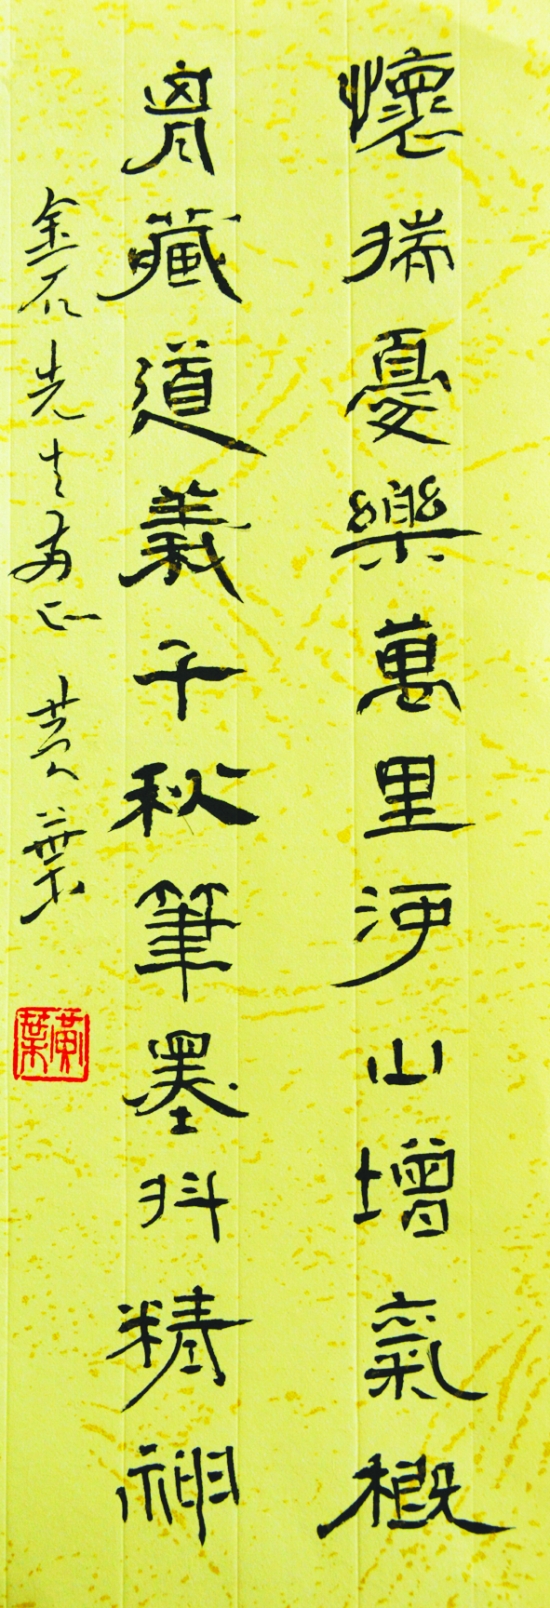 懷揣憂樂萬里河山增氣概
胷藏道義千秋筆墨抖精神
金石先生正 黄葉
黄葉